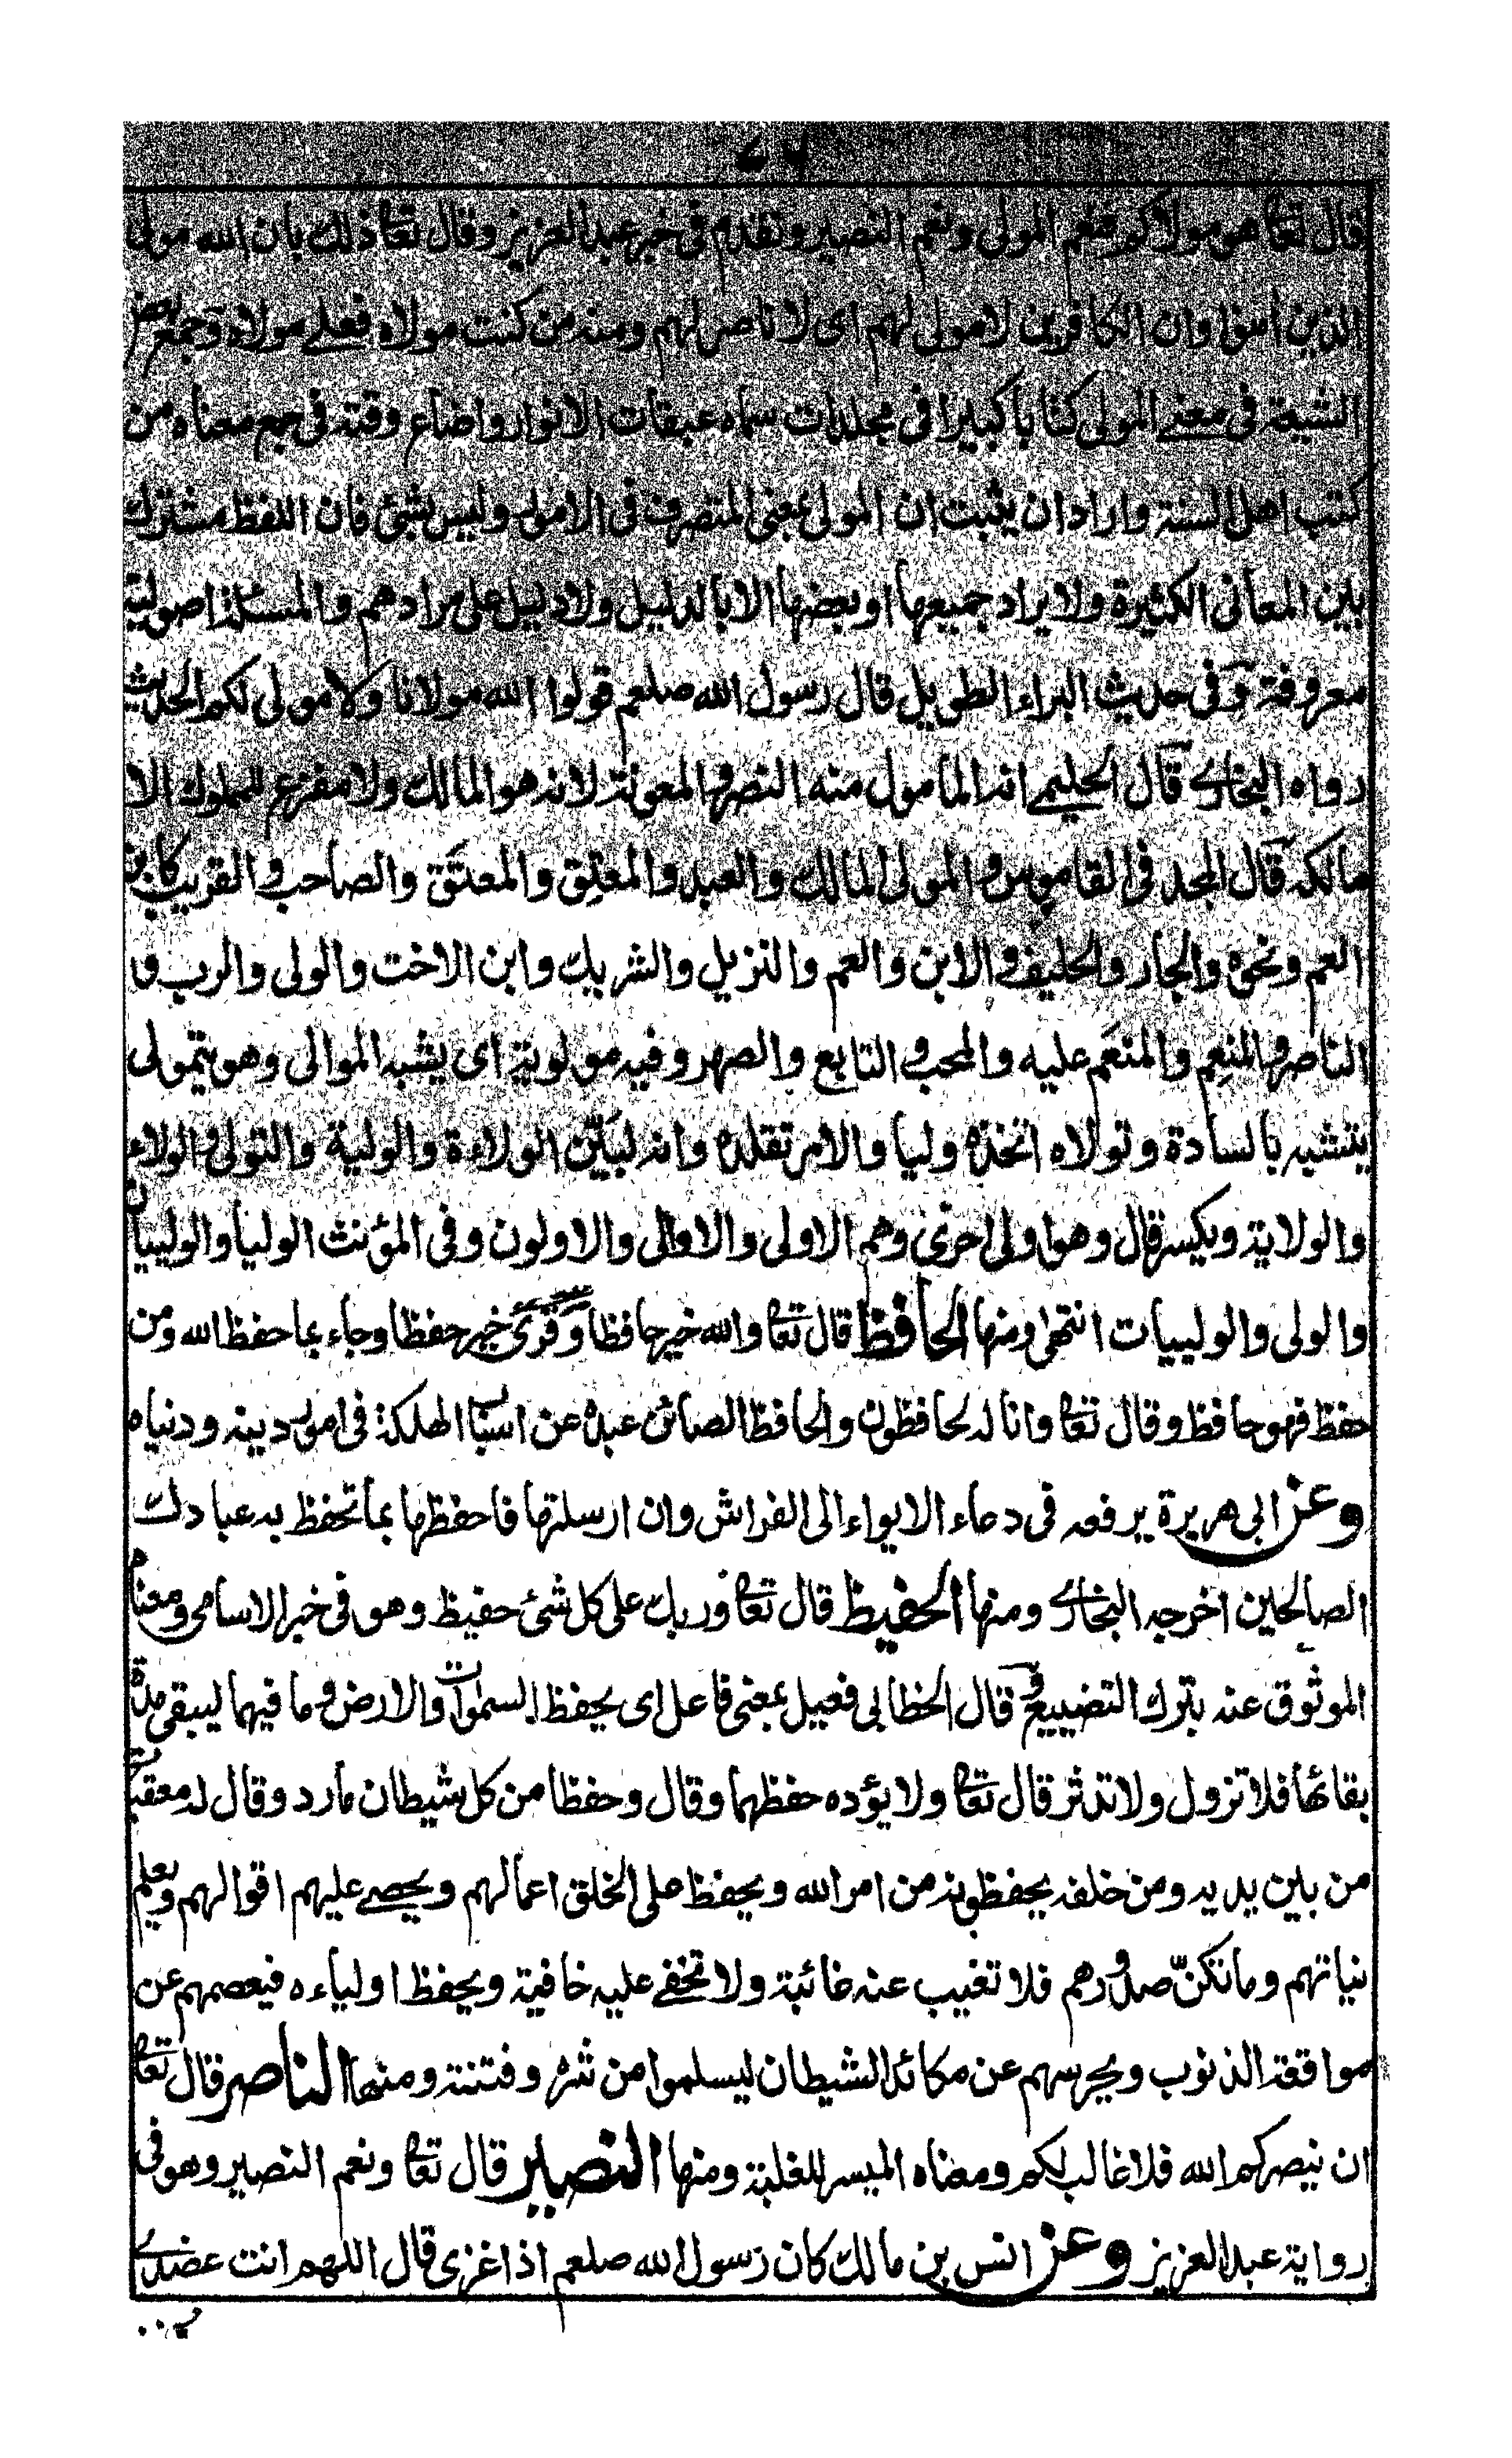 قال تعا هو مولاكم فنعم المولى ونعم النصير وتقدم في خبر عبد العزيز وقال تعا ذلك بان الله مولى
الذين امنوا وان الكافرين لا مولى لهم اى لا ناصر لهم ومنه من كنت مولاه فعلي مولاه وجمع بعض
الشيعة في معنى المولى كتابا كبيرا في مجلدات سماه عبقات الانوار واضاع وقته في جمع معناه من
كتب اهل السنة واراد ان يثبت ان المولى بمعنى المتصرف في الامور وليس بشئ فان اللفظ مشترك
بين المعاني الكثيرة ولا يراد جميعها او بعضها الا بالدليل ولا دليل على مرادهم والمسئلة اصولية
معروفة وفي حديث البراء الطويل قال رسول الله صلعم قولوا الله مولانا ولا مولى لكم الحديث
رواه البخاري قال الحليمي انه المامول منه النصر والمعونة لانه هو المالك ولا مفزع للمملوك الا
مالكه قال المجد في القاموس والمولى المالك والعبد والمعتِق والمعتَق والصاحب والقريب كابن
العم ونحوه والجار والحليف والابن والعم والنزيل والشريك وابن الاخت والولى والرب و
الناصر والمنعِم والمنعَم عليه والمحب والتابع والصهر وفيه مولوية اى يشبه الموالى وهو يتمولى
يتشبه بالسادة وتولاه اتخذه وليا والامر تقلده وانه لبيّن الولاءة والولية والتولى والولاء
والولاية ويكسر قال وهو اولى احرى وهم الاولى والاوالى والاولون وفي المؤنث الوليا والولييان
والولى والولييات انتهى ومنها الحافظ قال تعا والله خير حافظا وقرئ خير حفظا وجاء بما حفظ الله ومن
حفظ فهو حافظ وقال تعا وانا له لحافظون والحافظ الصائن عبده عن اسباب الهلكة في امور دينه ودنياه
وعن ابى هريرة يرفعه في دعاء الايواء الى الفراش وان ارسلتها فاحفظها بما تحفظ به عبادك
الصالحين اخرجه البخاري ومنها الحفيظ قال تعا وربك على كل شئ حفيظ وهو في خبر الاسامى ومعناه
الموثوق عنه بترك التضييع وقال الخطابى فعيل بمعنى فاعل اى يحفظ السموات والارض وما فيهما ليبقى مدة
بقائها فلا تزول ولا تدثر قال تعا ولا يؤده حفظهما وقال وحفظا من كل شيطان مارد وقال له معقبت
من بين يديه ومن خلفه يحفظونه من امر الله ويحفظ على الخلق اعمالهم ويحصے عليهم اقوالهم ويعلم
نياتهم وما تكنّ صدورهم فلا تغيب عنه غائبة ولا تخفے عليه خافية ويحفظ اولياءه فيعصمهم عن
مواقعة الذنوب ويحرسهم عن مكائد الشيطان ليسلموا من شره وفتنته ومنها الناصر قال تعا
ان ينصركم الله فلا غالب لكم ومعناه الميسر للغلبة ومنها النصير قال تعا ونعم النصير وهو في
رواية عبد العزيز وعن انس بن مالك كان رسول الله صلعم اذا غزى قال اللهم انت عضدي